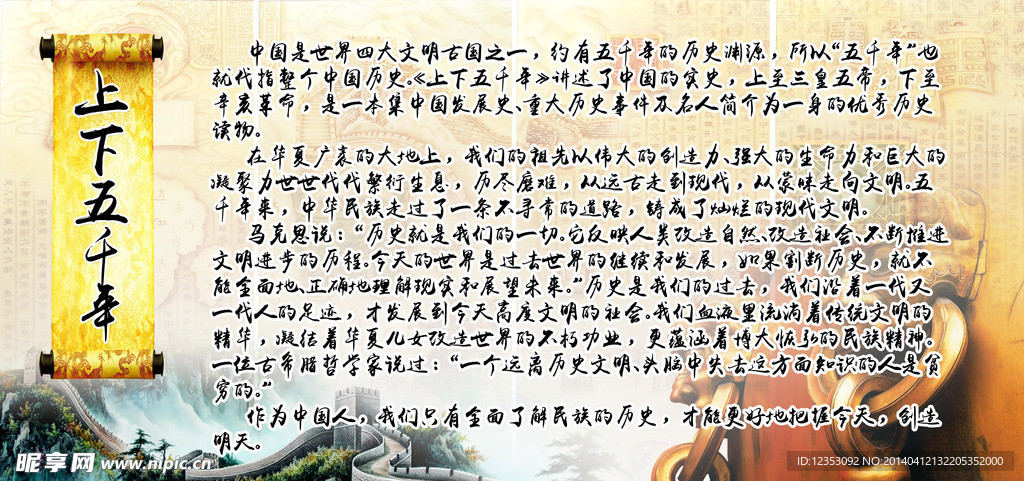 上下五千年
中国是世界四大文明古国之一，约有五千年的历史渊源，所以“五千年”也
就代指整个中国历史。《上下五千年》讲述了中国的实史，上至三皇五帝，下至
辛亥革命，是一本集中国发展史、重大历史事件及名人简介为一身的优秀历史
读物。
在华夏广袤的大地上，我们的祖先以伟大的创造力、强大的生命力和巨大的
凝聚力世世代代繁衍生息，历尽磨难，从远古走到现代，从蒙昧走向文明。五
千年来，中华民族走过了一条不寻常的道路，铸成了灿烂的现代文明。
马克思说：“历史就是我们的一切。它反映人类改造自然、改造社会、不断推进
文明进步的历程。今天的世界是过去世界的继续和发展，如果割断历史，就不
能全面地、正确地理解现实和展望未来。”历史是我们的过去，我们沿着一代又
一代人的足迹，才发展到今天高度文明的社会。我们血液里流淌着传统文明的
精华，凝结着华夏儿女改造世界的不朽功业，更蕴涵着博大恢弘的民族精神。
一位古希腊哲学家说过：“一个远离历史文明、头脑中失去这方面知识的人是贫
穷的。”
作为中国人，我们只有全面了解民族的历史，才能更好地把握今天，创造
明天。
昵享网 www.nipic.cn
ID:12353092 NO:20140412132205352000